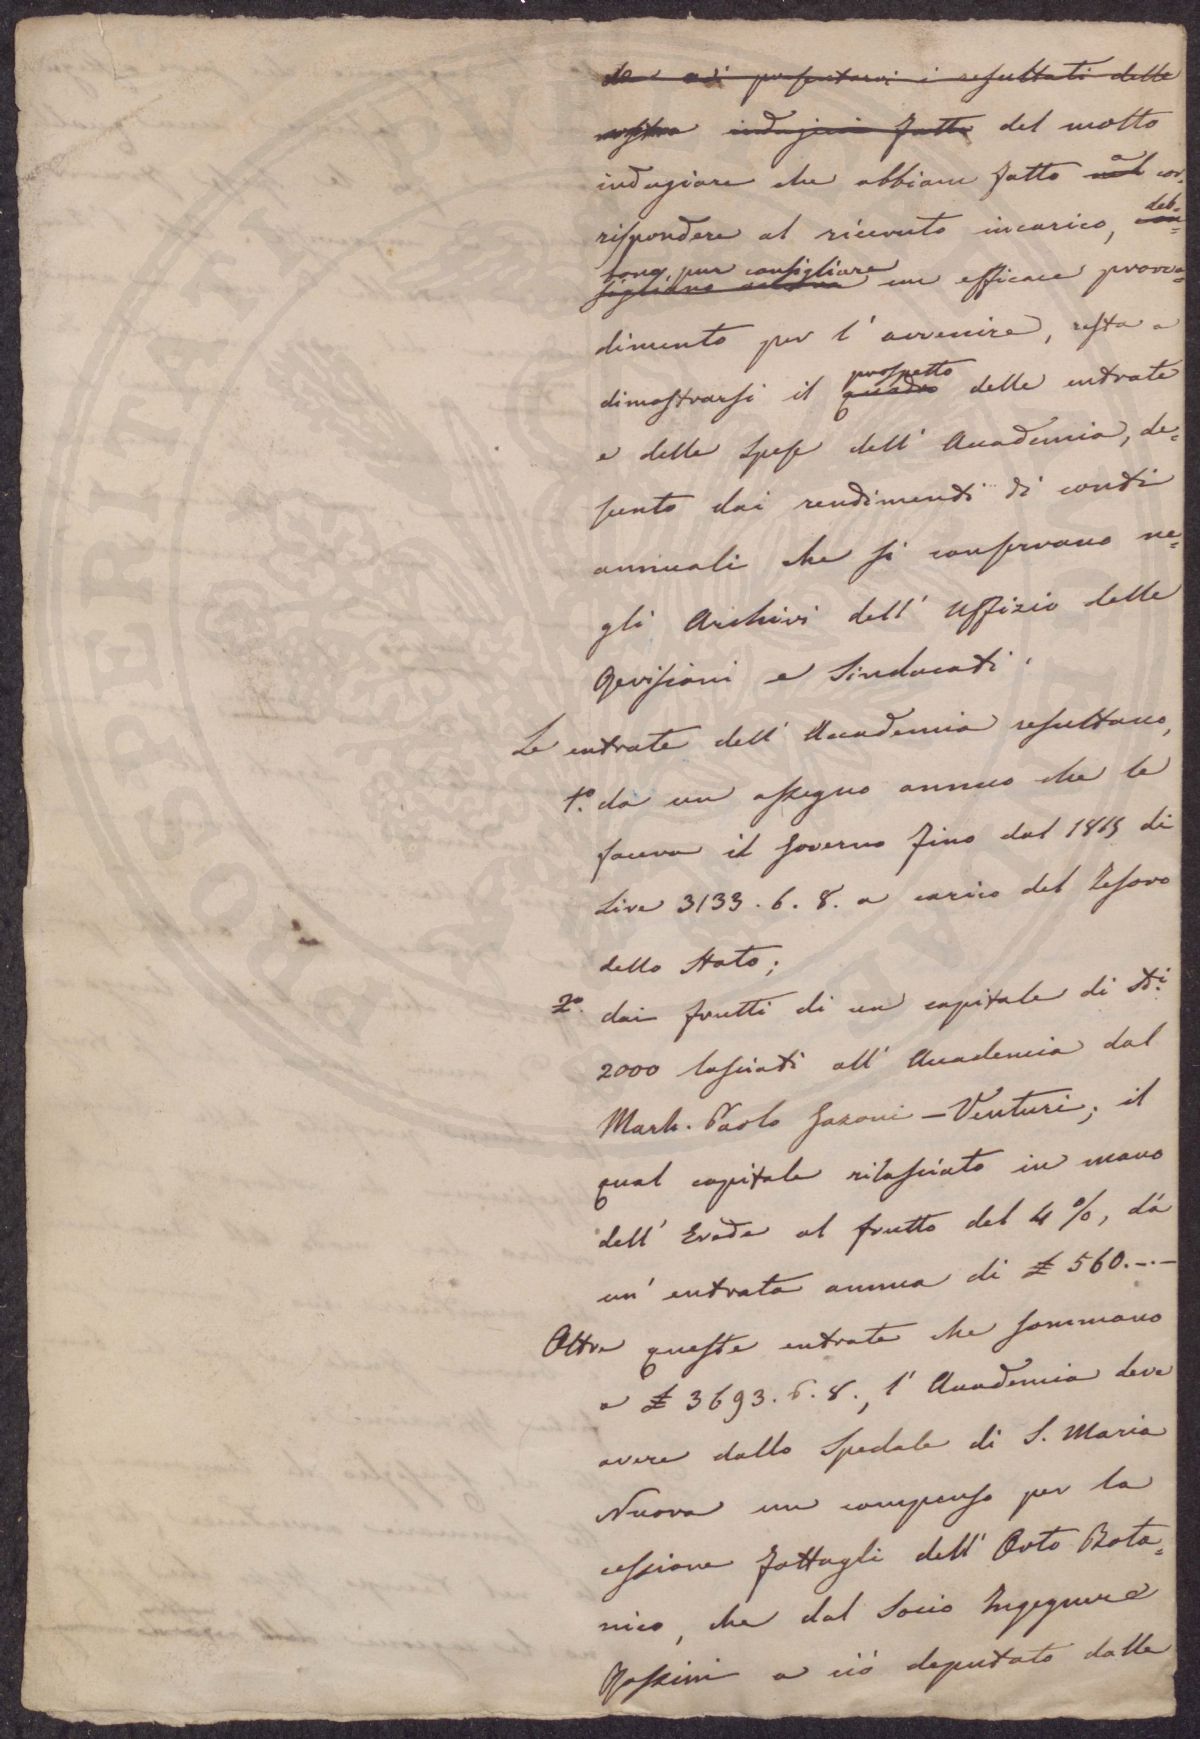 da noi presentarvi i resultati delle
nostre indagini fatte del molto
indugiare che abbiam fatto nel a cor-
rispondere al ricevuto incarico, con- deb-
sigliano ancora bono, pur consigliare un efficace provve-
dimento per l' avvenire, resta a
dimostrarsi il quadro prospetto delle entrate
e delle spese dell' Accademia, de-
sunto dai rendimenti di conti
annuali che si conservano ne-
gli Archivi dell' Uffizio delle
Revisioni e Sindacati.
Le entrate dell' Accademia resultano,
1.º da un assegno annuo che le
faceva il Governo fino dal 1815 di
Lire 3133. 6. 8. a carico del Tesoro
dello Stato;
2.º dai frutti di un capitale di
2000 lasciati all' Accademia dal
March. Paolo Garzoni-Venturi; il
qual capitale rilasciato in mano
dell' Erede al frutto del 4 %, dá
un' entrata annua di £ 560.-.-
Oltre queste entrate che sommano
a £ 3693. 6. 8., l' Accademia deve
avere dallo Spedale di S. Maria
Nuova un compenso per la
cessione fattagli dell' Orto Bota-
nico, che dal Socio Ingegnere
a ció deputato dalla